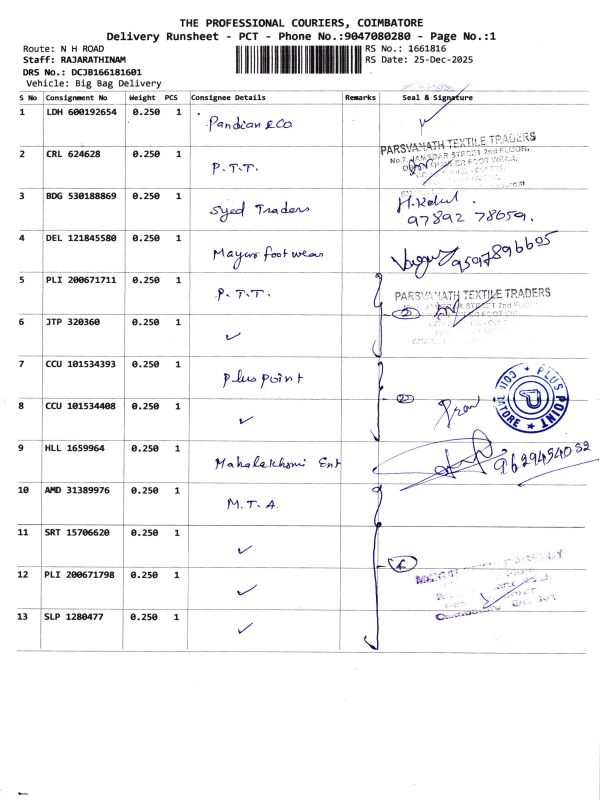 THE PROFESSIONAL COURIERS, COIMBATORE
Delivery Runsheet - PCT - Phone No.:9047080280 - Page No.:1
Route: N H ROAD
RS No.: 1661816
Staff: RAJARATHINAM
RS Date: 25-Dec-2025
DRS No.: DCJB166181601
Vehicle: Big Bag Delivery
S No Consignment No Weight PCS Consignee Details Remarks Seal & Signature
1 LDH 600192654 0.250 1 Pandian & Co
2 CRL 624628 0.250 1 P.T.T. PARSVANATH TEXTILE TRADERS
STREET 2nd FLOOR,
3 BDG 530188869 0.250 1 Syed Traders
97892 78659.
4 DEL 121845580 0.250 1 Mayur footwear 9597896605
5 PLI 200671711 0.250 1 P.T.T. PARSVANATH TEXTILE TRADERS
STREET 2nd FLOOR
6 JTP 320360 0.250 1 ✓ 2
7 CCU 101534393 0.250 1 Plus point
PLUS POINT COIMBATORE
8 CCU 101534408 0.250 1 ✓ 2
9 HLL 1659964 0.250 1 Mahalakhsmi Ent
10 AMD 31389976 0.250 1 M.T.A.
11 SRT 15706620 0.250 1 ✓
12 PLI 200671798 0.250 1 ✓
13 SLP 1280477 0.250 1 ✓